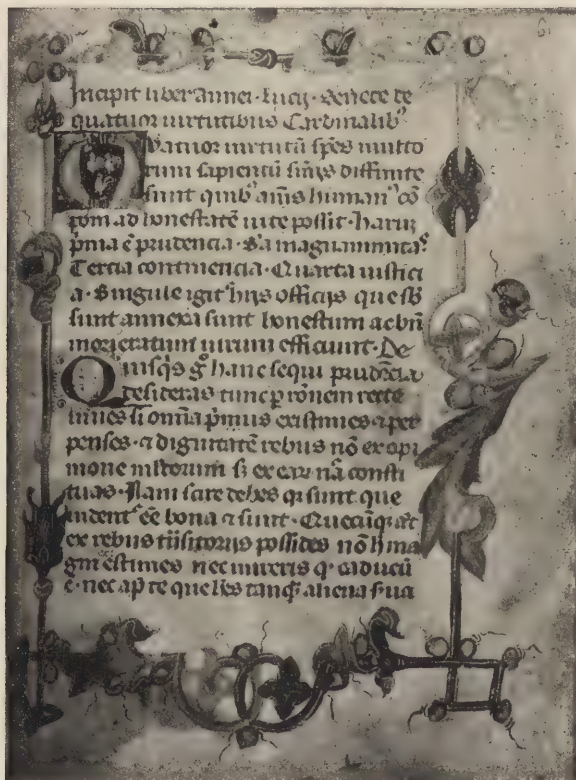 Incipit liber Annei · lucij · Senece de
quatuor uirtutibus Cardinalib⁹
Quatuor uirtutū spēs multo
rum sapientū sn̄ijs diffinite
sunt quib⁹ aīus human⁹ cō
poni ad honestatē uite possit · harū
p̄ma ē prudencia · S̄a magnanimitas
Tercia continencia · Quarta iustici
a · Singule igit̄ hijs officijs que sb̄
sunt annexa sunt honestum ac bn̄
morieratum uirum efficiunt · De
Quisq̄s gͦ hanc sequi prudēcīa
desideras tunc p rōnem recte
uiues si omīa p̄mus existimes ⁊ per
penses · ⁊ dignitatē rebus nō ex opi
nione ml̄torum s; ex ear̄ nā consti
tuas · Nam scire debes q̄ sunt que
uident̄ eē bona ⁊ sunt · Quecūq̄
ex rebus tn̄sitorijs possides nō ma
gni estimes nec mireris q̄ caducū
ē · nec ap̄ te que hēs tanq̄ aliena